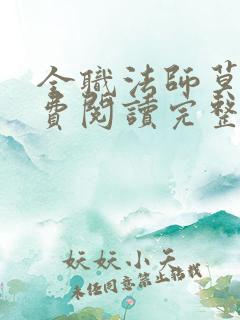 全職法師莫
費閱讀完整
妖妖小天
未经同意禁止转载